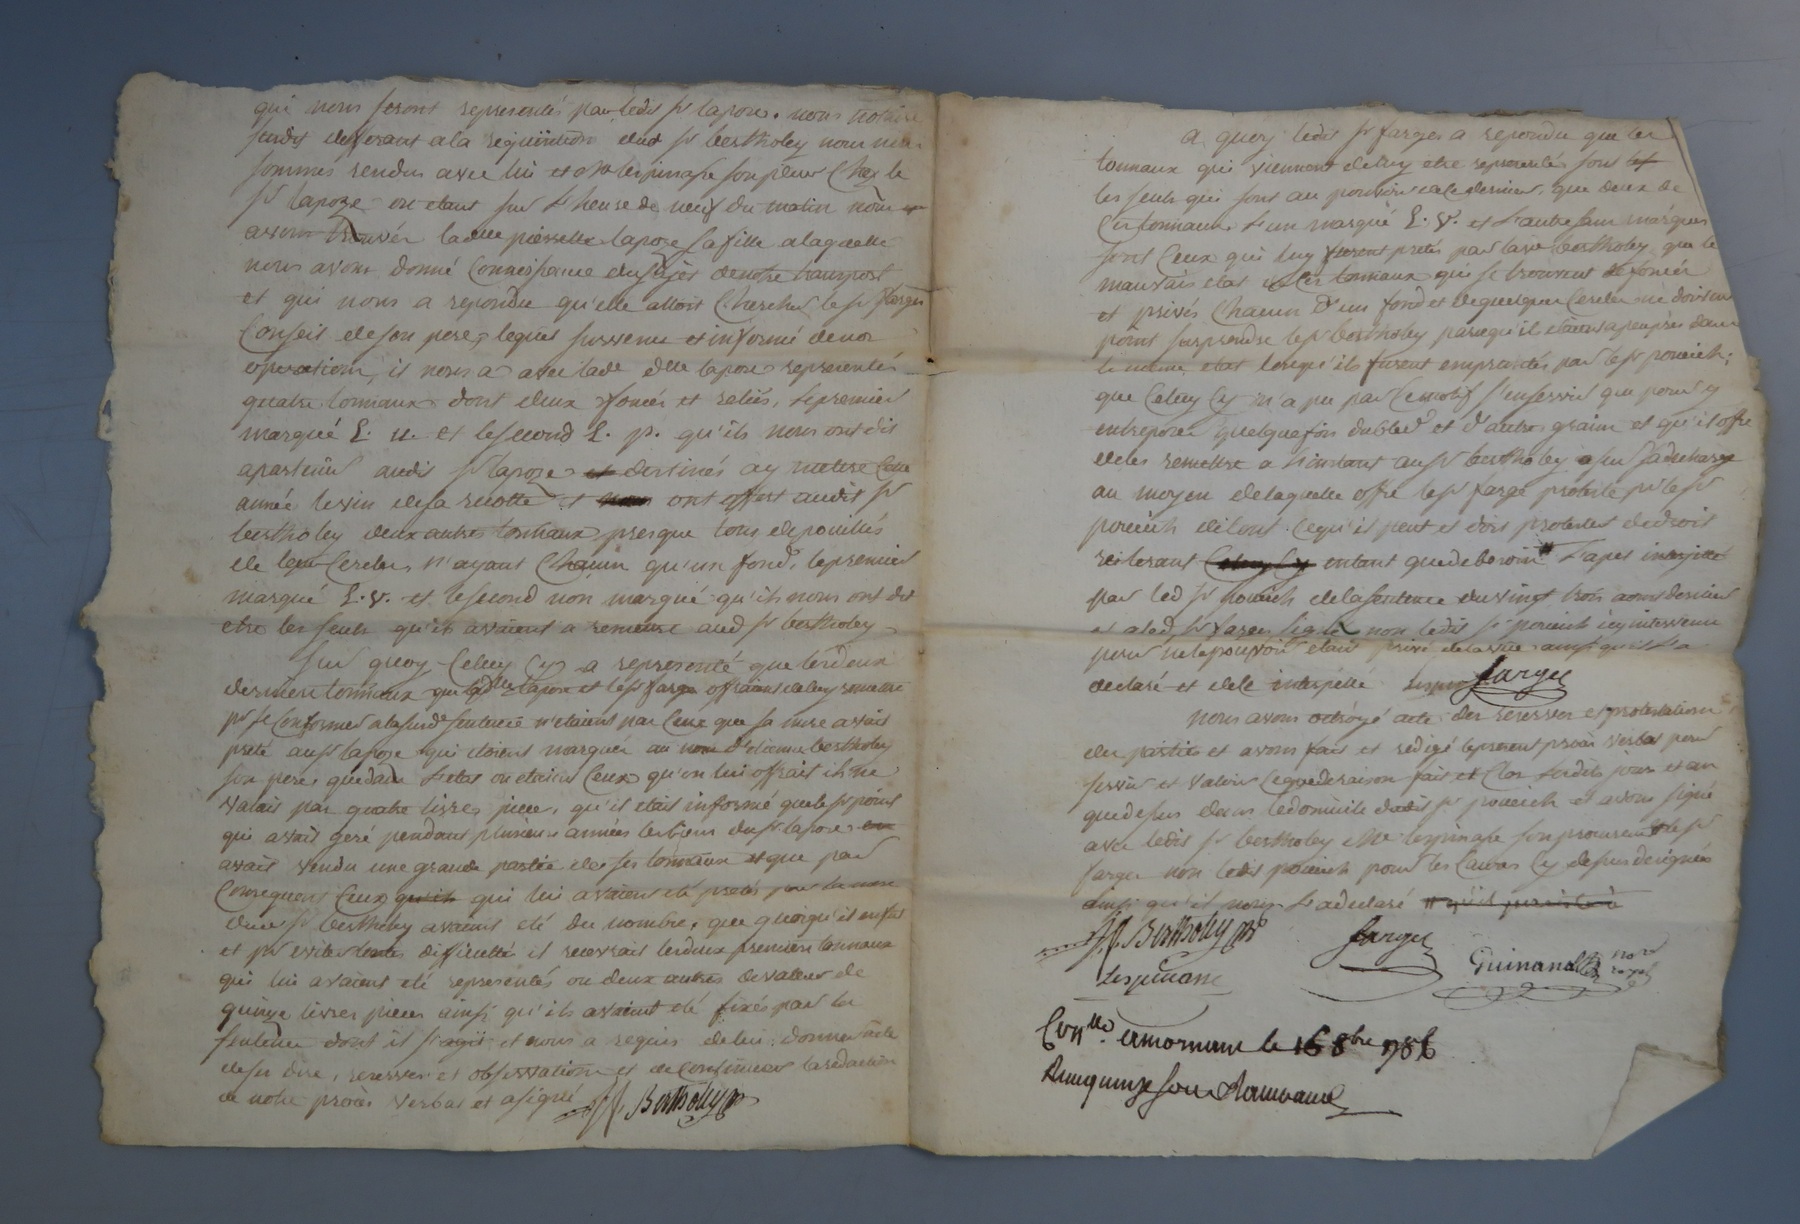 qui nous seront representés par ledit sr lapoze. nous notaire
susdit deferant a la requisition dud sr bertholey nous nous
sommes rendus avec lui et Me lespinasse son procur Chez le
sr lapoze ou etant sur L'heure de neuf du matin nous
avons trouvés lade dlle pierrette lapoze sa fille a laquelle
nous avons donné Connoissance du sujet de notre transport
et qui nous a repondu qu'elle alloit Chercher le sr farges
Conseil de son pere, lequel survenu et informé de nos
operations, il nous a avec lade dlle lapoze representés
quatre tonnaux dont deux foncés et reliés, Le premier
marqué L. u. et le second L. p. qu'ils nous ont dit
apartenir audit sr lapoze et destinés a y mettre Cette
année le vin de sa recolte et ont offert audit sr
bertholey deux autres tonnaux presque tous depouillés
de leur Cercles, n'ayant Chacun qu'un fond, le premier
marqué L. V. et le second non marqué qu'ils nous ont dit
etre les seuls qu'ils avaient a remettre aud sr bertholey
Sur quoy Celuy Cy a representé que les deux
derniers tonnaux que lade dlle lapoze et le sr farge offraient de luy remettre
pr se Conformer a la susde sentence n'etaient pas Ceux que sa mere avait
preté au sr lapoze qui etoient marqués au nom d'etienne bertholey
son pere, que dans L'etat ou etaient Ceux qu'on lui offrait ils ne
valait pas quatre livres piece, qu'il etait informé que le sr point
qui avait geré pendant plusieurs années les biens du sr lapoze en
avait vendu une grande partie de ses tonnaux et que par
Consequent Ceux qu'ils qui lui avaient eté pretés par la mere
dud sr bertholey avaient eté du nombre, que quoiqu'il en fut
et pr eviter toutes difficultés il recevrait les deux premiers tonnaux
qui lui avaient eté representés ou deux autres de valeur de
quinze livres pieces ainsi qu'ils avaient eté fixés par la
sentence dont il s'agit et nous a requis de lui donner acte
de ses dire, reserves et observations et de Continuer la redaction
de notre procès verbal et a signé J J. Bertholey
a quoy ledit sr farges a repondu que les
tonnaux qui viennent de luy etre representés sont les
les seuls qui sont au pouvoir de Ce dernier, que deux de
Ces tonnaux L'un marqué L. V. et L'autre sans marques
sont Ceux qui luy furent pretés par la ve bertholey, que le
mauvais etat de Ces tonnaux qui se trouvent defoncés
et privés Chacun d'un fond et de quelques Cercles ne doivent
point surprendre le sr bertholey parcequ'ils etaient a peu près dans
le meme etat lorsqu'ils furent empruntés par le sr
que Celuy Cy n'a pu par Ce motif s'en servir que pour y
entreposer quelquefois du bled et d'autres grains et qu'il offre
de les remettre a L'instant au sr bertholey a sa decharge
au moyen de laquelle offre le sr farge proteste pr le sr
de tout Ce qu'il peut et doit protester de droit
reiterant Celuy Cy entant que de besoin L'apel interjetté
par led sr de la sentence du vingt trois aout dernier
et a led sr farges signé non ledit sr icy intervenu
pour ne le pouvoir etant privé de la vue ainsi qu'il L'a
declaré et de Ce interpellé farges
nous avons octroyé acte des reserves et protestations
des parties et avons fait et redigé le present procès verbal pour
servir et valoir Ce que de raison fait et Clos Lesdits jour et an
que dessus dans le domicile dudit sr et avons signé
avec ledit sr bertholey Me lespinasse son procureur et le sr
farges non ledit pour les Causes Cy dessus designées
ainsi qu'il nous L'a declaré
J J. Bertholey farges
lespinasse Guinand nore royal
Conlle a mornant le 16 8bre 1786
Reçu quinze sous